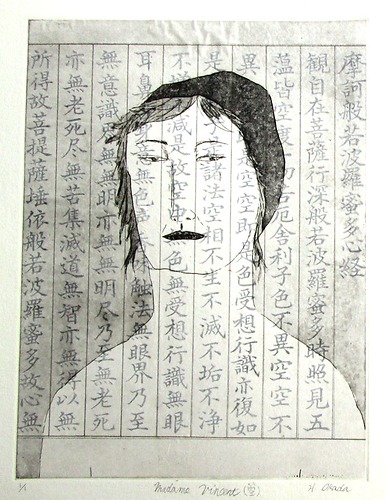 摩訶般若波羅蜜多心経
観自在菩薩行深般若波羅蜜多時照見五
蘊皆空度一切苦厄舎利子色不異空空不
異是空空即是色受想行識亦復如
是子是諸法空相不生不滅不垢不浄
不増不減是故空中無色無受想行識無眼
耳鼻舌身意無色声香味触法無眼界乃至
無意識界無無明亦無無明尽乃至無老死
亦無老死尽無苦集滅道無智亦無得以無
所得故菩提薩埵依般若波羅蜜多故心無
Madame Vincent (空)
H Okada